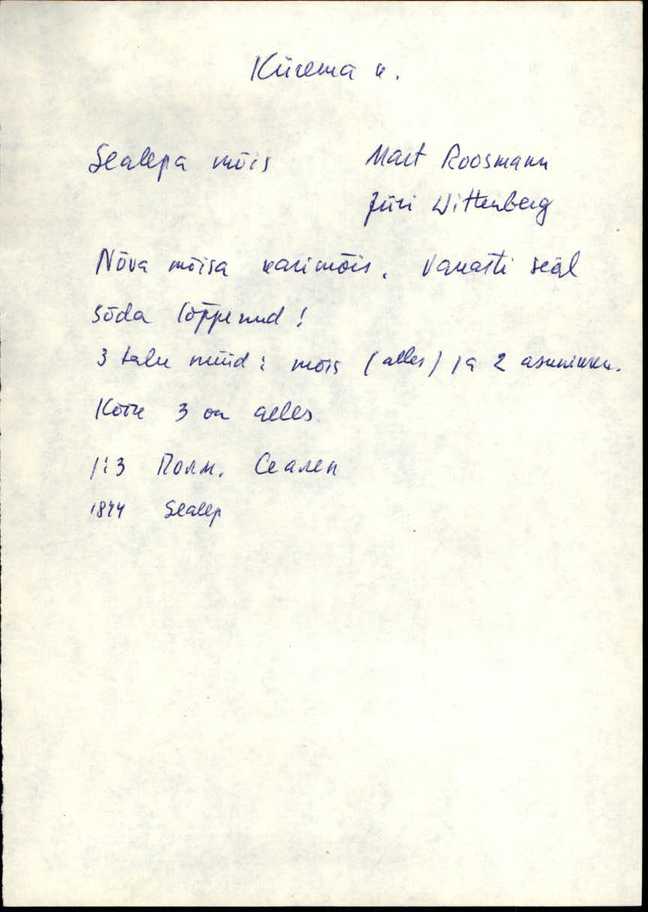 Kürema k.
Sealepa mõis Mart Roosmann
Jüri Wittenberg
Nõva mõisa karimõis. Vanasti seäl
sõda lõppenud!
3 talu nüüd: mõis (alles) ja 2 asunikku.
Kõik 3 on alles
1:3 Полм. Сеалеп
1844 Sealep